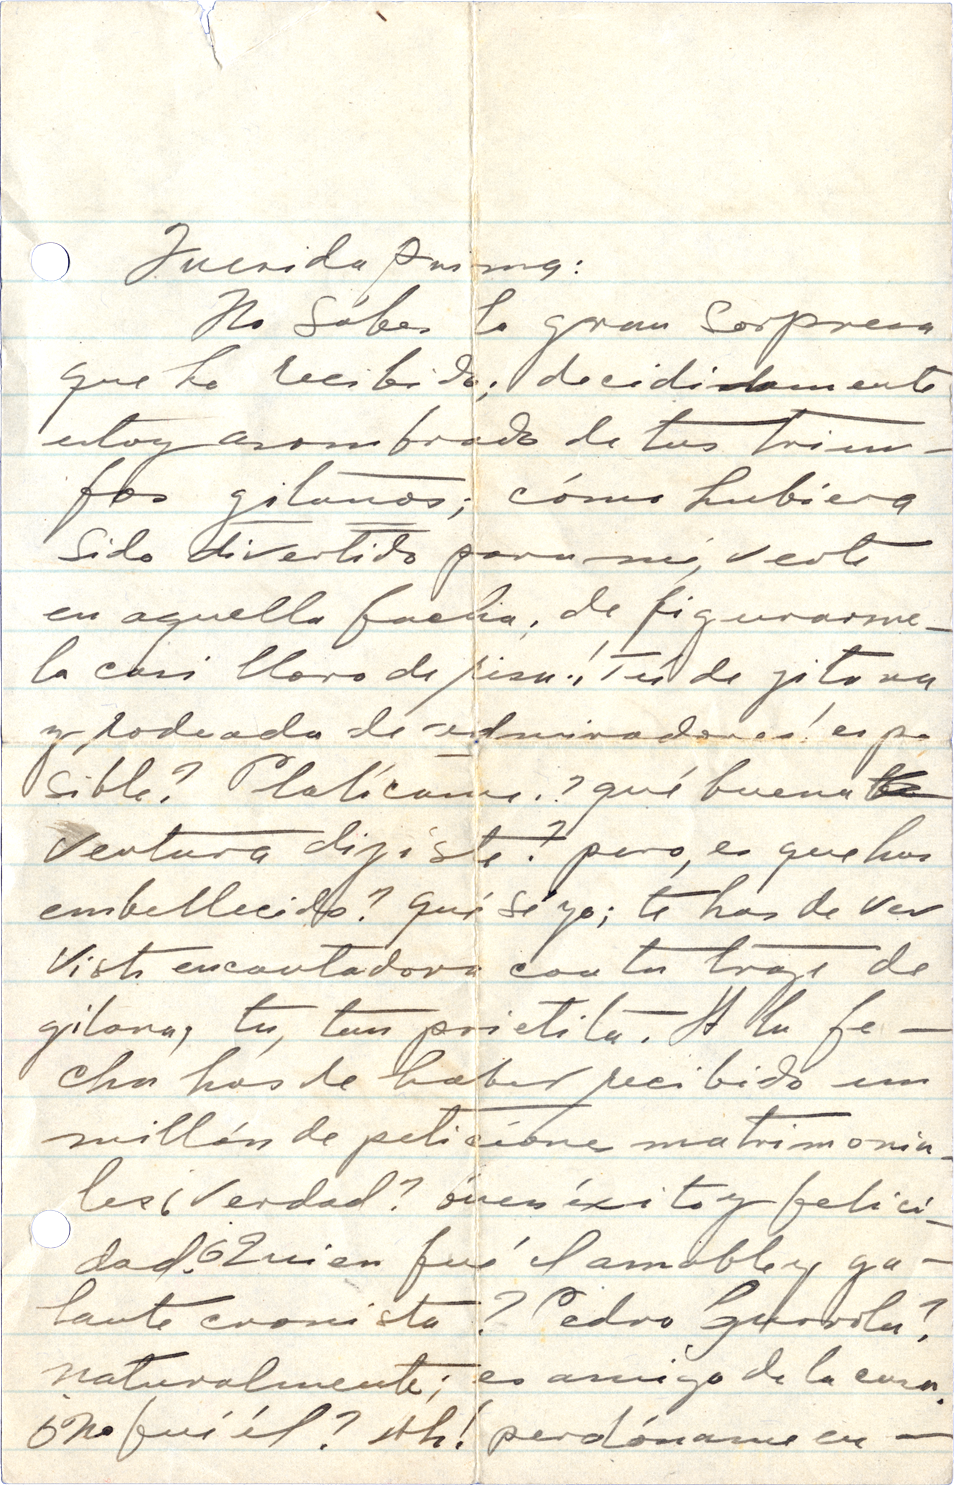 Querida Prima:
No sábes la gran sorpresa
que he recibido; decididamente
estoy asombrado de tus triun-
fos gitanos; cómo hubiera
sido divertido para mí, verte
en aquella facha, de figurarme-
la casi lloro de risa.! Tú de gitana
y rodeada de admiradores! es po
sible? Platícame.? qué buena
ventura dijiste? pero, es que has
embellecido? qué sé yo; te has de ver
visto encantadora con tu traje de
gitana, tu, tan prietita. A la fe-
cha has de haber recibido un
millón de peticione matrimonia-
les ¿verdad? buen éxito y felici-
dad. ¿Quien fué el amable y ga-
lante cronista? Pedro Gurrola?
naturalmente; es amigo de la casa.
¿No fué él? Ah! perdóname en-